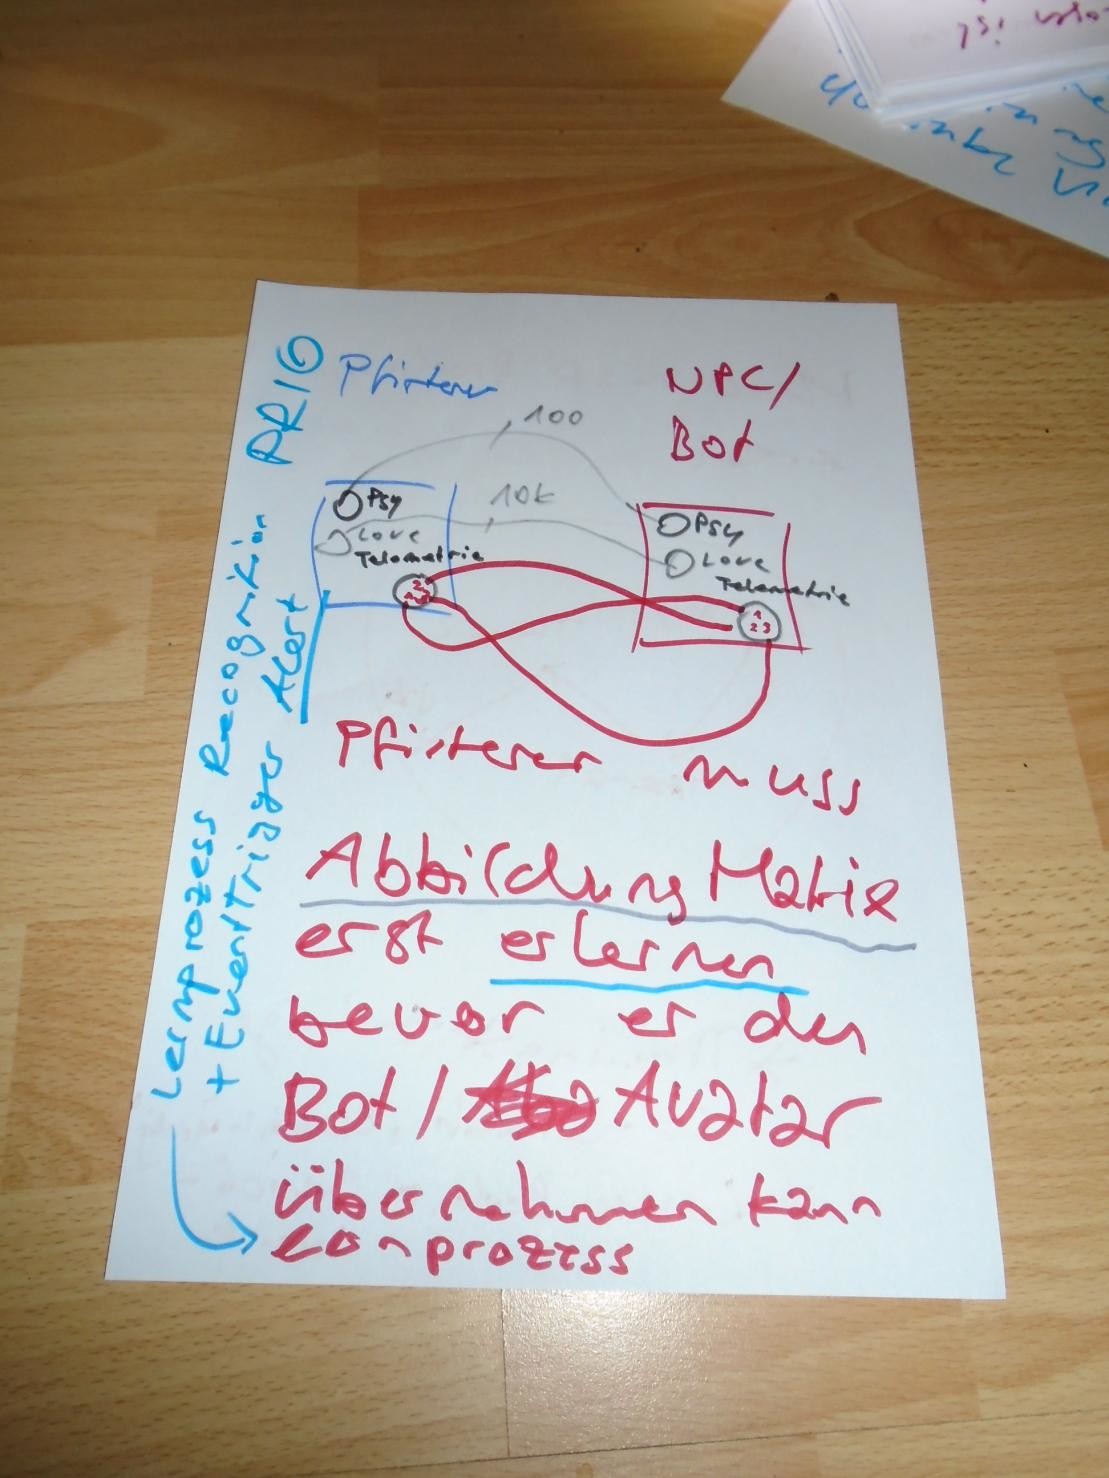 PRIO
Pfisterer
NPC/
Bot
100
10k
Psy
Love
Telemetrie
Psy
Love
Telemetrie
1
2 3
Lernprozess Recognition
+ Eventtrigger Alert
Pfisterer muss
Abbildung Matrix
erst erlernen
bevor er den
Bot / Avatar
übernehmen kann